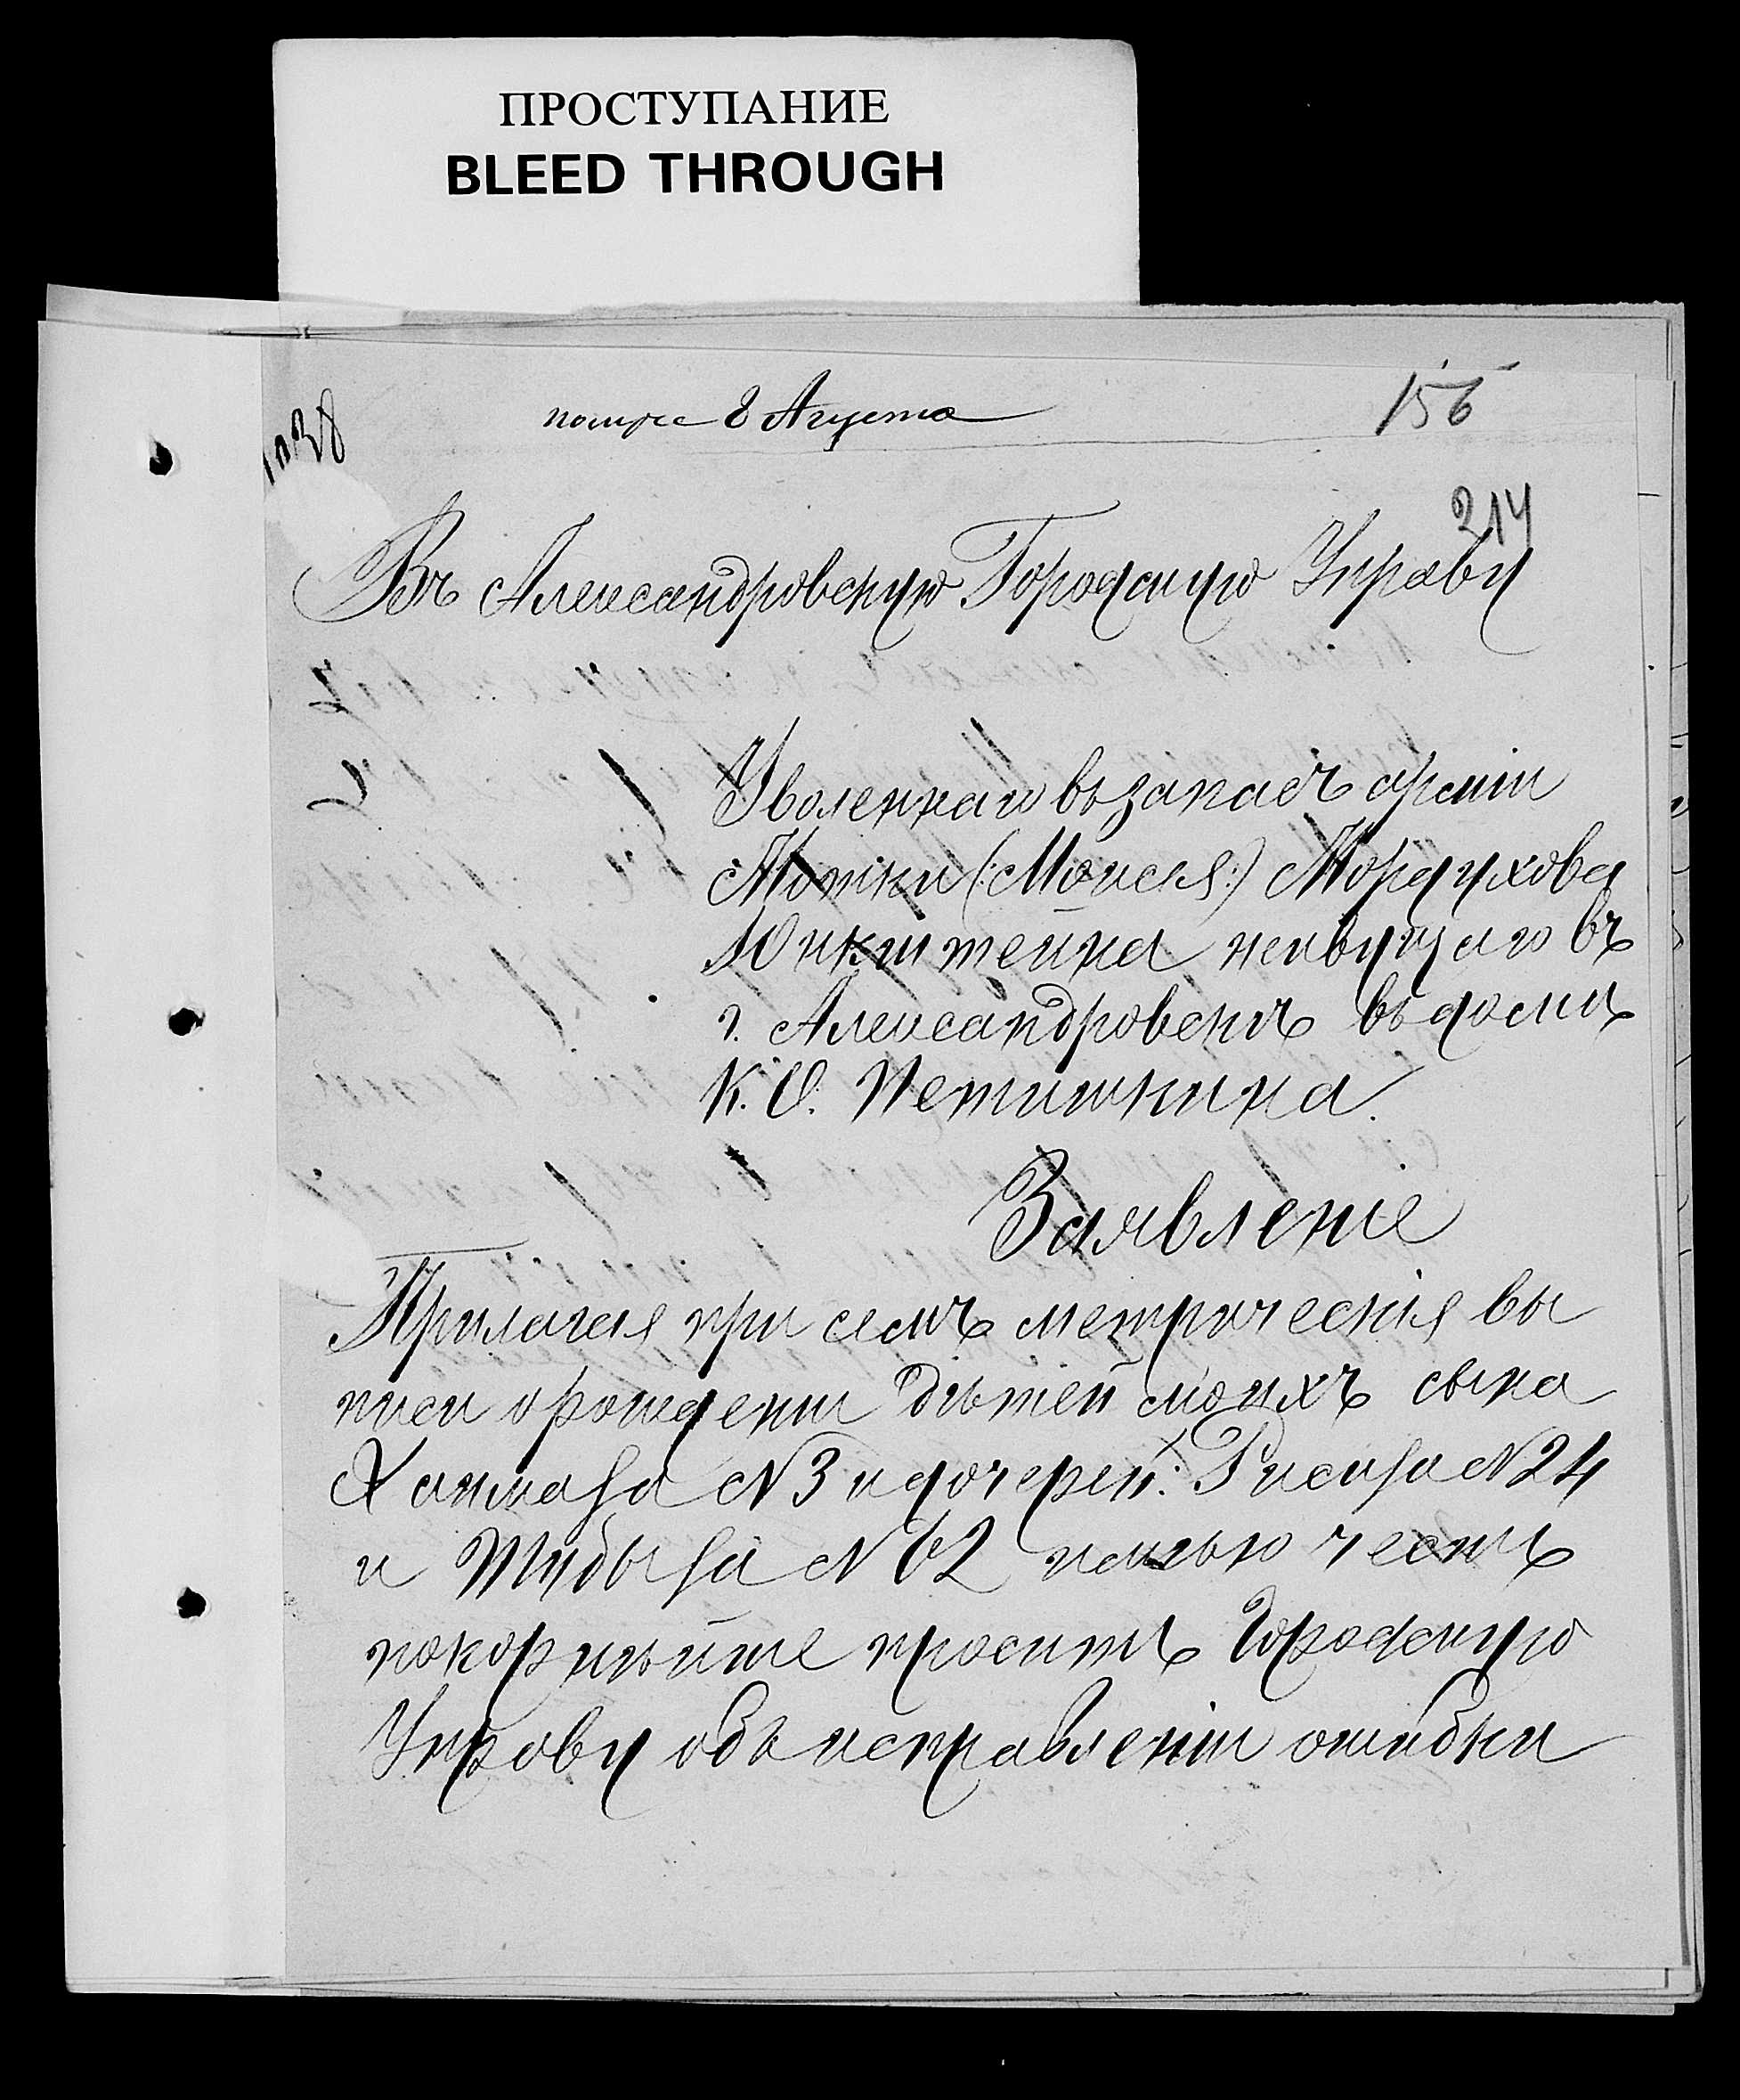 ПРОСТУПАНИЕ
BLEED THROUGH
8 Августа
156
214
Въ Александровскую Городскую Управу
Уволеннаго въ запасъ арміи
Мотки (:Моисея:) Мордухова
Юнкштейна живущаго въ
г. Александровскѣ въ домѣ
К. О. Петишкина.
Заявленіе
Прилагая при семъ метрическія вы
писи о рожденіи дѣтей моихъ сына
№ 3 и дочерей: № 24
и № 62 имѣю честь
покорнѣйше просить Городскую
Управу объ исправленіи ошибки